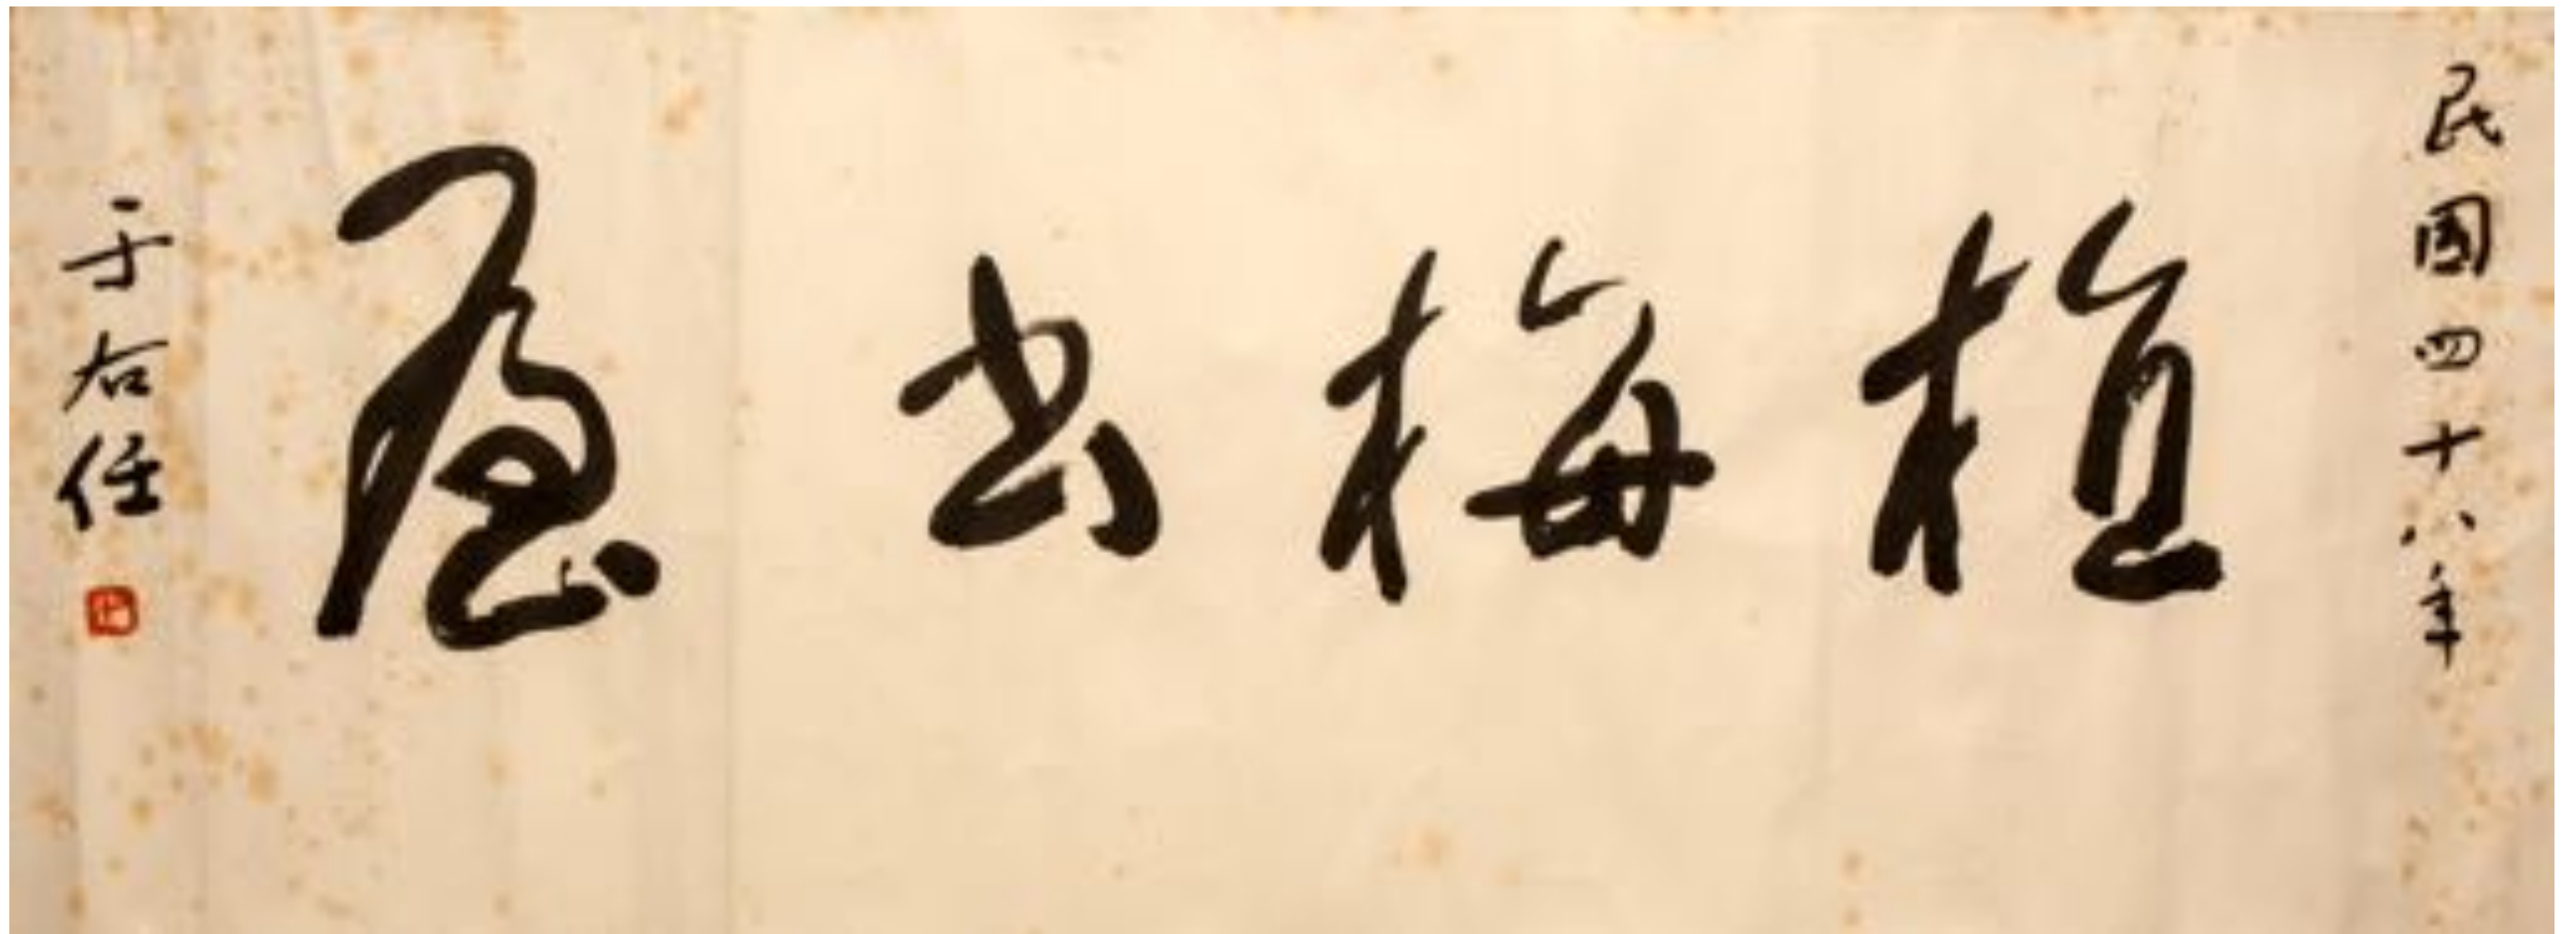 民國四十八年
植梅書屋
于右任